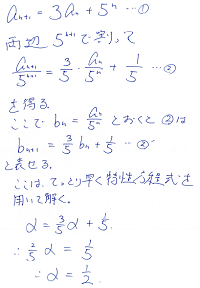 aₙ₊₁ = 3aₙ + 5ⁿ …①
両辺 5ⁿ⁺¹ で割って
aₙ₊₁/5ⁿ⁺¹ = 3/5 · aₙ/5ⁿ + 1/5 …②
を得る.
ここで bₙ = aₙ/5ⁿ とおくと ②は
bₙ₊₁ = 3/5 bₙ + 1/5 …②'
と表せる.
ここは、てっとり早く特性方程式を
用いて解く.
α = 3/5 α + 1/5.
∴ 2/5 α = 1/5
∴ α = 1/2.